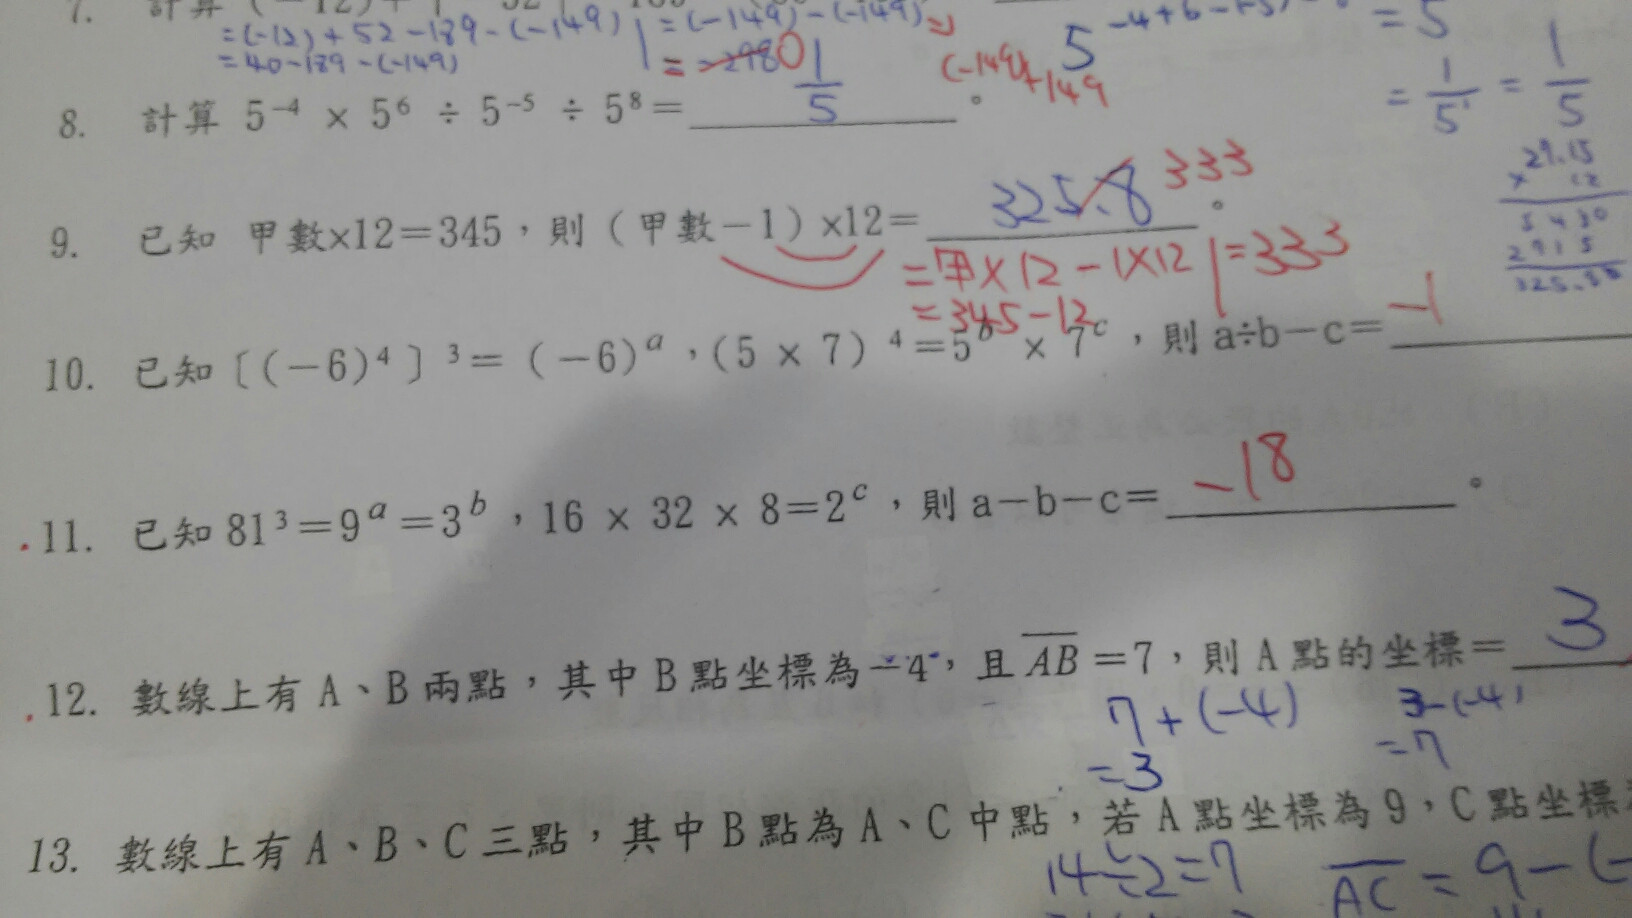 7. 計算
=(-12)+52-189-(-149) =(-149)-(-149)⇒
=40-189-(-149) = -298 0 (-149)+149
8. 計算 5⁻⁴ × 5⁶ ÷ 5⁻⁵ ÷ 5⁸= 1/5 。
= 5
= 1/5¹ = 1/5
9. 已知 甲數×12=345,則(甲數-1)×12= 325.8 333 。
29.15
× 12
5830
2915
=甲×12-1×12 =333
=345-12
10. 已知〔(-6)⁴〕³=(-6)ᵃ,(5 × 7)⁴=5ᵇ × 7ᶜ,則 a÷b-c= -1
11. 已知 81³=9ᵃ=3ᵇ,16 × 32 × 8=2ᶜ,則 a-b-c= -18 。
12. 數線上有 A、B 兩點,其中 B 點坐標為-4,且 A̅B̅=7,則 A 點的坐標= 3
7+(-4) 3-(-4)
=3 =7
13. 數線上有 A、B、C 三點,其中 B 點為 A、C 中點,若 A 點坐標為 9,C 點坐標
14÷2=7 A̅C̅=9-(-